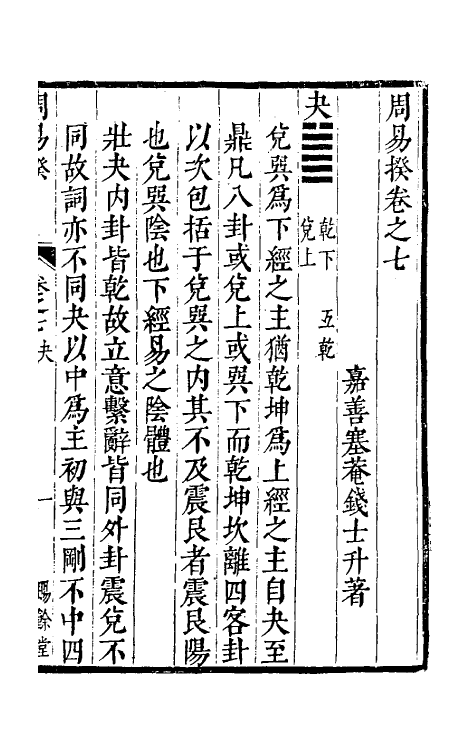 周易揆卷之七
嘉善塞菴錢士升著
夬
乾下
兌上
互乾
兌巽爲下經之主猶乾坤爲上經之主自夬至
鼎凡八卦或兌上或巽下而乾坤坎離四客卦
以次包括于兌巽之內其不及震艮者震艮陽
也兌巽陰也下經易之陰體也
壯夬內卦皆乾故立意繫辭皆同外卦震兌不
同故詞亦不同夬以中爲主初與三剛不中四
周易揆
卷之七夬
一
賜餘堂